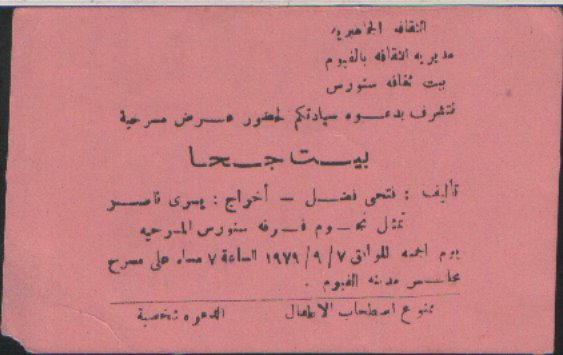 الثقافه الجماهيريه
مديريه الثقافه بالفيوم
بيت ثقافه سنورس
نتشرف بدعوه سيادتكم لحضور عرض مسرحية
بيت جحا
تأليف : فتحى فضل - أخراج : يسرى ناصر
تمثل نجوم فرقه سنورس المسرحيه
يوم الجمعه الموافق ٧ / ٩ / ١٩٧٩ الساعة ٧ مساء على مسرح
مدينه الفيوم .
ممنوع اصطحاب الاطفال الدعوه شخصية